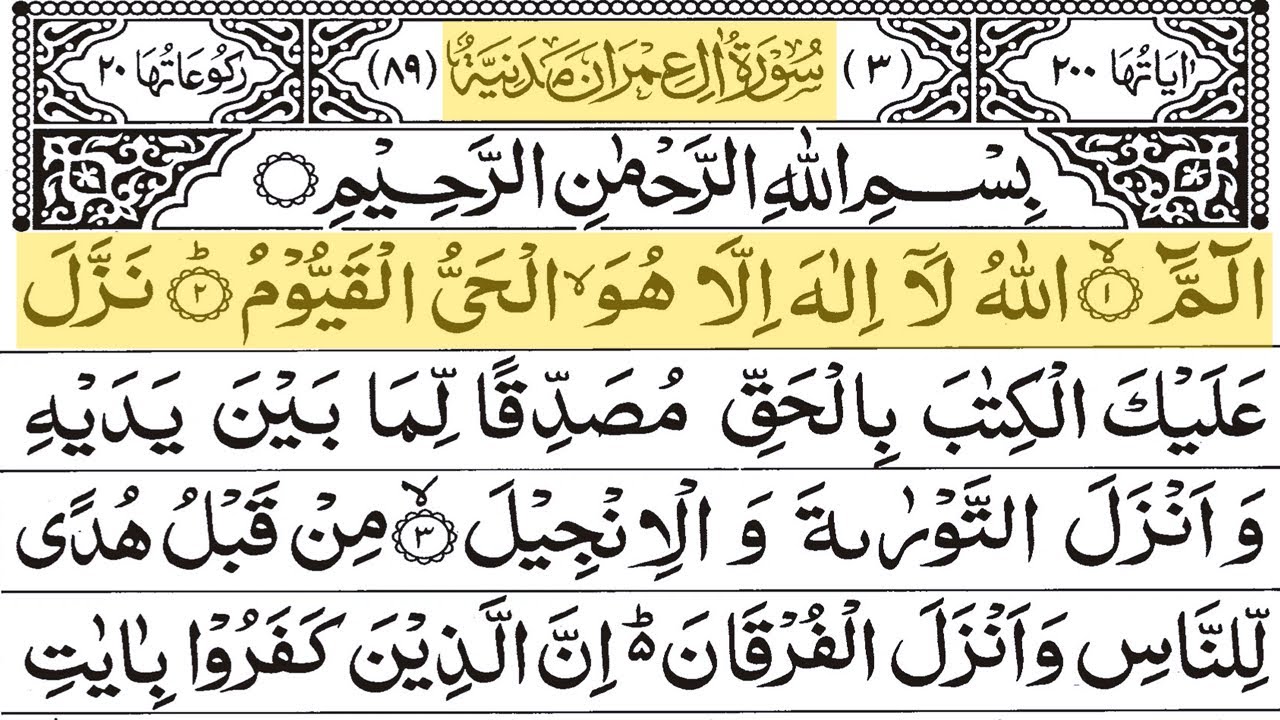 اٰيَاتُهَا ٢٠٠ (٣) سُوْرَةُ اٰلِ عِمْرٰنَ مَدَنِيَّةٌ (٨٩) رُكُوْعَاتُهَا ٢٠
بِسْمِ اللّٰهِ الرَّحْمٰنِ الرَّحِيْمِ
الٓمَّٓ ۙ﴿١﴾ اللّٰهُ لَاۤ اِلٰهَ اِلَّا هُوَ ۙ الْحَىُّ الْقَيُّوْمُ ؕ﴿٢﴾ نَزَّلَ
عَلَيْكَ الْكِتٰبَ بِالْحَقِّ مُصَدِّقًا لِّمَا بَيْنَ يَدَيْهِ
وَ اَنْزَلَ التَّوْرٰىةَ وَ الْاِنْجِيْلَ ۙ﴿٣﴾ مِنْ قَبْلُ هُدًى
لِّلنَّاسِ وَ اَنْزَلَ الْفُرْقَانَ ؕ۵ اِنَّ الَّذِيْنَ كَفَرُوْا بِاٰيٰتِ